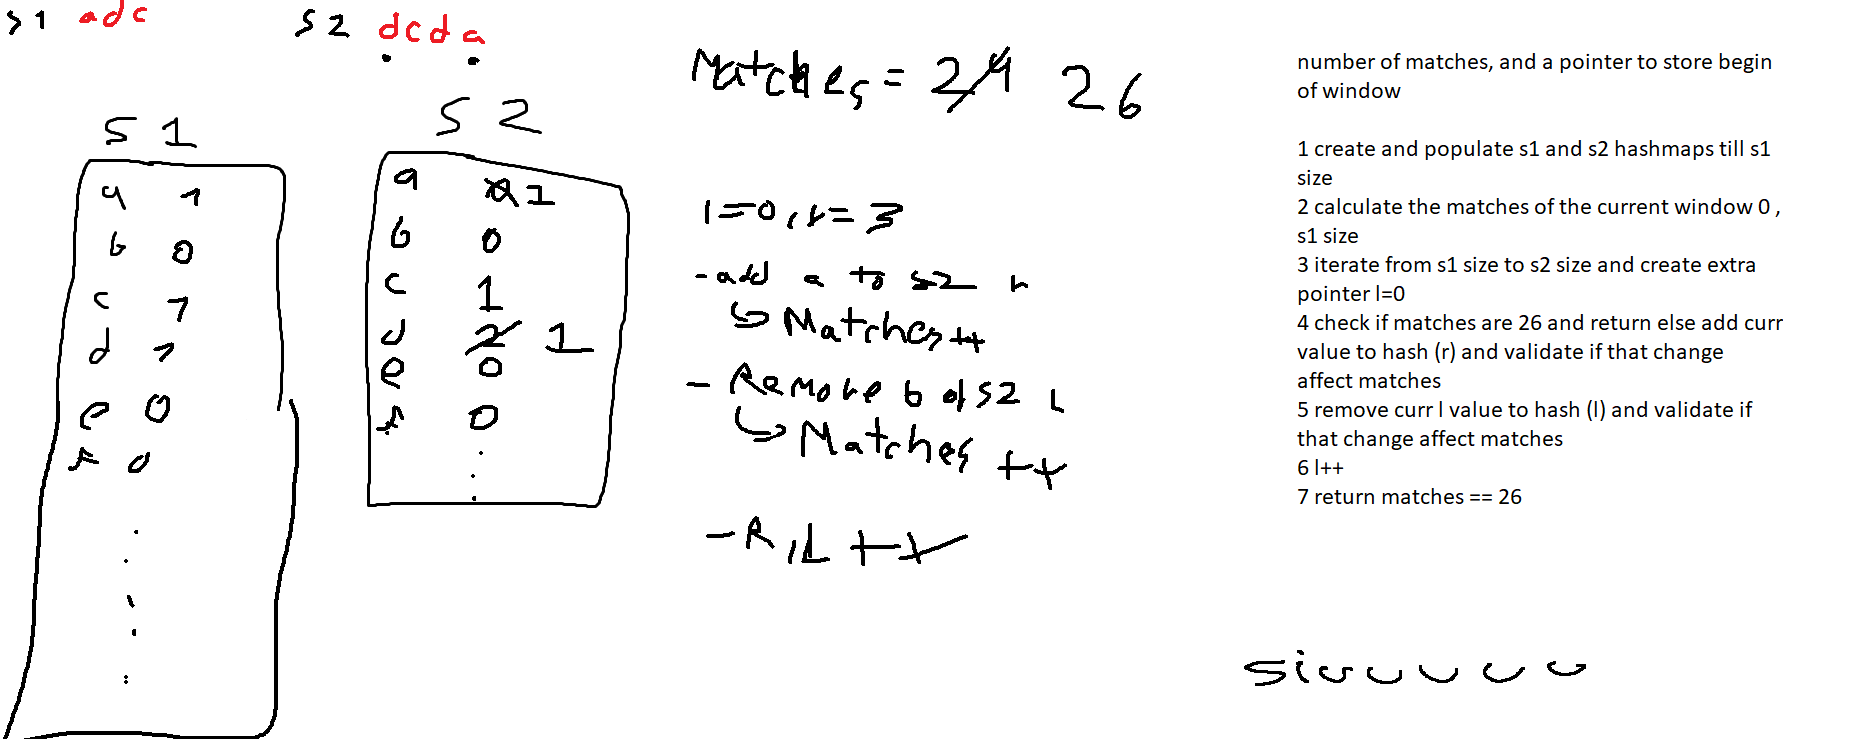 s1 adc
s2 dcda
Matches = 24 26
S1
a 1
b 0
c 1
d 1
e 0
f 0
S2
a 0 1
b 0
c 1
d 2 1
e 0
f 0
l=0, r=3
- add a to s2 r
Matches++
- Remove b of s2 L
Matches ++
- R, L ++
number of matches, and a pointer to store begin
of window
1 create and populate s1 and s2 hashmaps till s1
size
2 calculate the matches of the current window 0 ,
s1 size
3 iterate from s1 size to s2 size and create extra
pointer l=0
4 check if matches are 26 and return else add curr
value to hash (r) and validate if that change
affect matches
5 remove curr l value to hash (l) and validate if
that change affect matches
6 l++
7 return matches == 26
siuuuuu